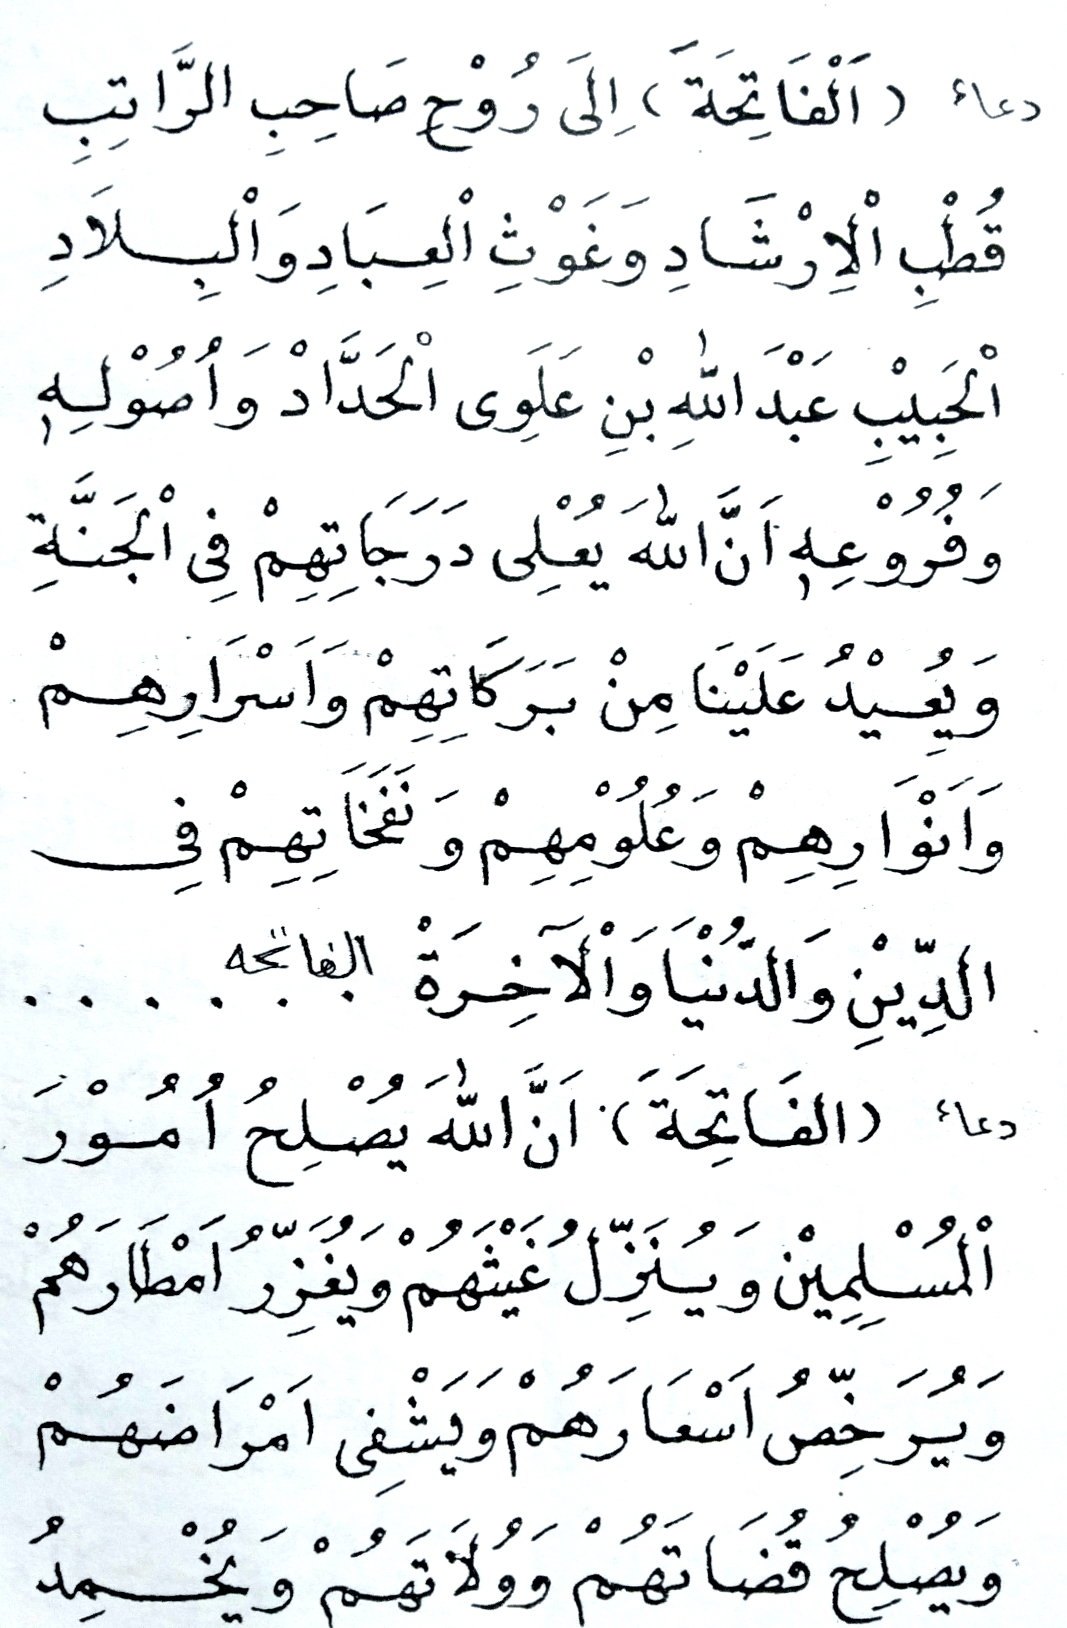 دعاء (اَلْفَاتِحَةَ) اِلَى رُوْحِ صَاحِبِ الرَّاتِبِ
قُطْبِ الْاِرْشَادِ وَغَوْثِ الْعِبَادِ وَالْبِلَادِ
الْحَبِيْبِ عَبْدَ اللهِ بْنِ عَلَوِى الْحَدَّادْ وَاُصُوْلِهٖ
وَفُرُوْعِهٖ اَنَّ اللهَ يُعْلِى دَرَجَاتِهِمْ فِى الْجَنَّةِ
وَيُعِيْدُ عَلَيْنَا مِنْ بَرَكَاتِهِمْ وَاَسْرَارِهِمْ
وَاَنْوَارِهِمْ وَعُلُوْمِهِمْ وَنَفَخَاتِهِمْ فِى
الدِّيْنِ وَالدُّنْيَا وَالْآخِرَةْ الفاتحه . . . . . .
دعاء (الفَاتِحَةَ) اَنَّ اللهَ يُصْلِحُ اُمُوْرَ
الْمُسْلِمِيْنَ وَيُنَزِّلُ غَيْثَهُمْ وَيُغَزِّرُ اَمْطَارَهُمْ
وَيُرَخِّصُ اَسْعَارَهُمْ وَيَشْفِى اَمْرَاضَهُمْ
وَيُصْلِحُ قُضَاتَهُمْ وَوُلَاتَهُمْ وَيُخْمِدُ